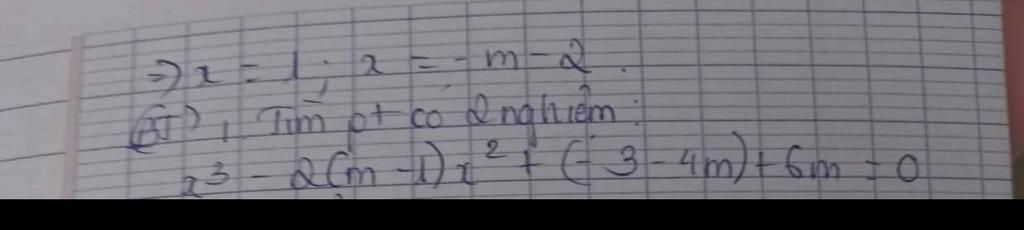 => x = 1 ; x = - m - 2 .
(BT), Tìm pt có 2 nghiệm :
x³ - 2(m - 1)x² + (- 3 - 4m) + 6m = 0